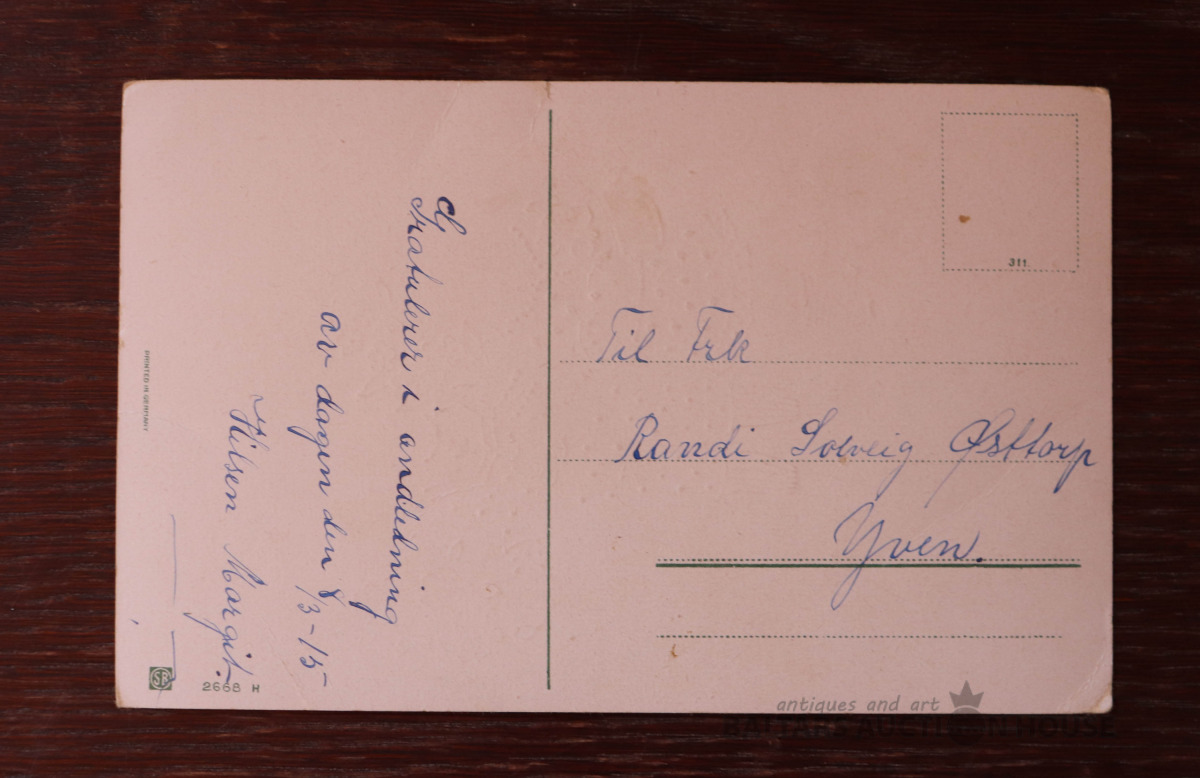 Gratulerer i andledning
av dagen den 8/3-15
Hilsen Margit.
PRINTED IN GERMANY
2668 H
311.
Til Frk
Randi Solveig Østtorp
Yven.
antiques and art
BALTARS AUCTION HOUSE